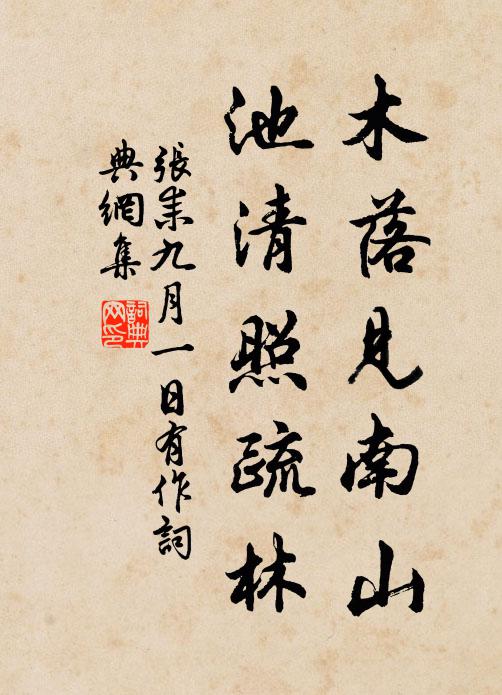 木落見南山
池清照疏林
張耒九月一日有作詞
典網集
詞典
网印